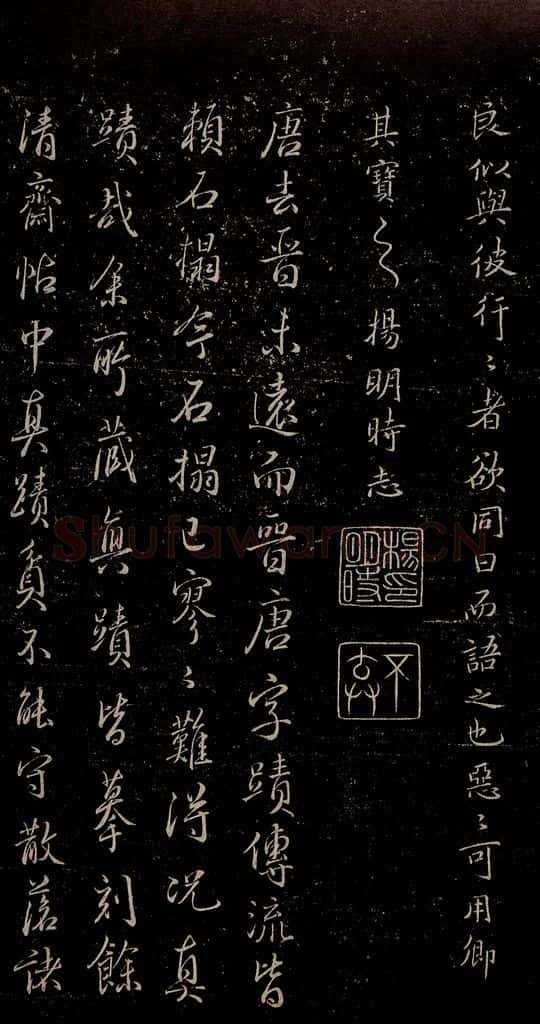 良似與彼行〻者欲同日而語之也惡〻可用卿
其寶之楊明時志
楊明時印
不弃
唐去晉未遠而晉唐字蹟傳流皆
賴石搨今石搨已寥〻難得况真
蹟哉余所藏真蹟皆摹刻餘
清齋帖中真蹟貧不能守散落諸
Shufawang.CN